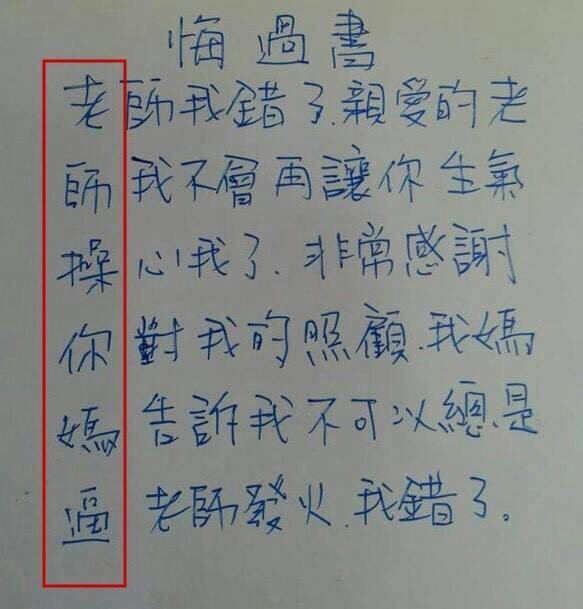 悔過書
老師我錯了.親愛的老
師我不會再讓你生氣
操心我了.非常感謝
你對我的照顧.我媽
媽告訴我不可以總是
逼老師發火.我錯了。